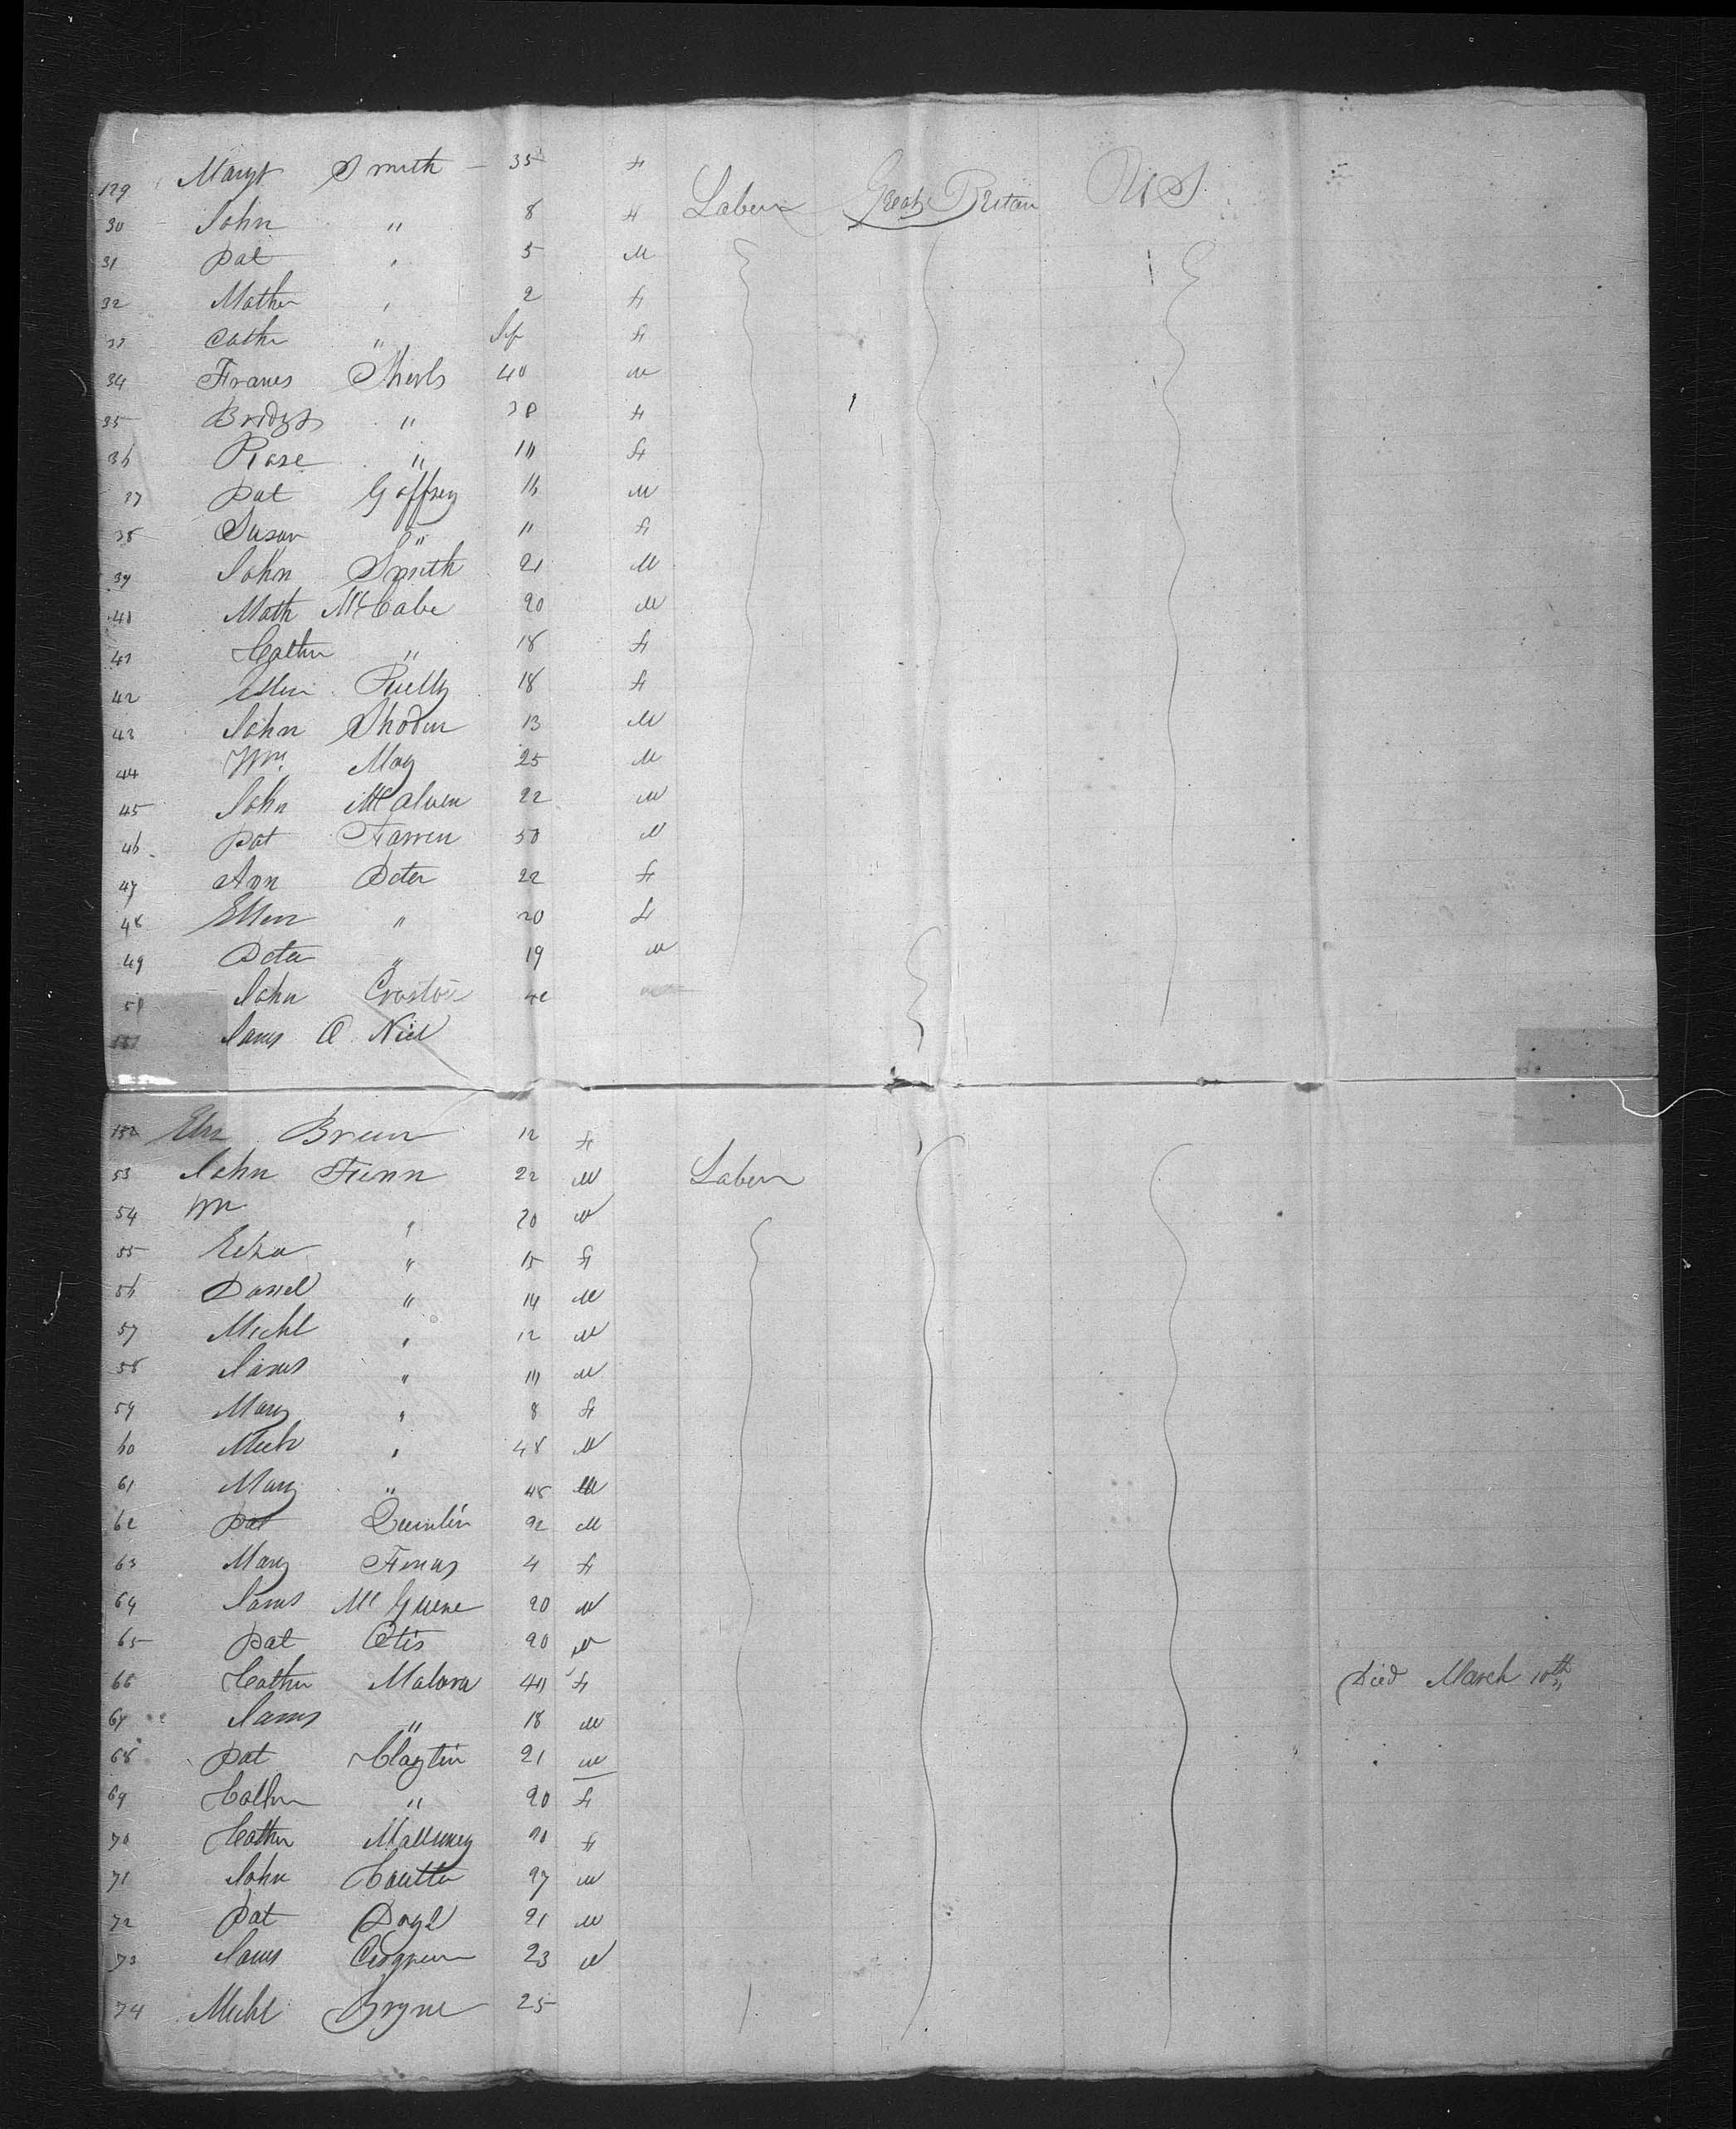 129 Margt Smith - 35 F Labour Great Britain U S
30 John " 8 F
31 Pat " 5 M
32 Mathew " 2 F
33 Cathe " Inf F
34 Frances 40 M
35 Bridgt " 38 F
36 Rose " 10 F
37 Pat Goffrey 16 M
38 Susan " 11 F
39 John Smith 21 M
40 Math McCabe 20 M
41 Cathn " 18 F
42 Ellen Reilly 18 F
43 John 13 M
44 Wm May 25 M
45 John 22 M
46 Pat Farren 50 M
47 Ann Peter 22 F
48 Ellen " 20 F
49 Peter " 19 M
50 John 40
151 James O Niel
152 Breen 12 F
53 John Finn 22 M Labour
54 Wm " 20 M
55 Eliza " 15 F
56 Daniel " 14 M
57 Michl " 12 M
58 James " 10 M
59 Mary " 8 F
60 Mich " 48 M
61 Mary " 48 M
62 Pat Quinlin 22 M
63 Mary 4 F
64 James McGuire 20 M
65 Pat Otis 20 M
66 Cathn Malona 40 F Died March 10th
67 James " 18 M
68 Pat Claytin 21 M
69 Cathn " 20 F
70 Cathn Malluney 20 F
71 John 27 M
72 Pat Doyl 21 M
73 James 23 M
74 Michl Bryne 25